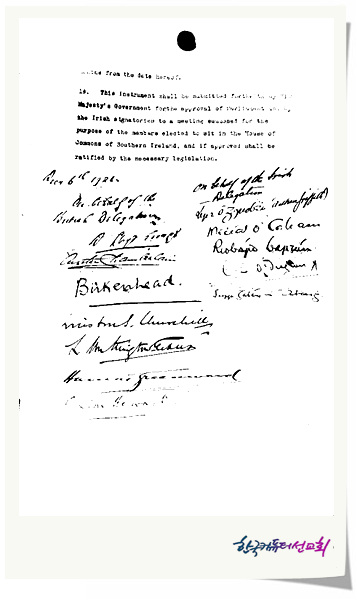 from the date hereof.
18. This instrument shall be submitted forthwith by His
Majesty's Government for the approval of Parliament and by
the Irish signatories to a meeting summoned for the
purpose of the members elected to sit in the House of
Commons of Southern Ireland, and if approved shall be
ratified by the necessary legislation.
Decr 6th 1921.
On behalf of the
British Delegation
D Lloyd George
Austen Chamberlain
Birkenhead.
Winston S. Churchill
L Worthington-Evans
Hamar Greenwood
Gordon Hewart
On behalf of the Irish
Delegation
Art Ó Gríobhtha (Arthur Griffith)
Mícheál Ó Coileain
Riobárd Bartún
한국컴퓨터선교회